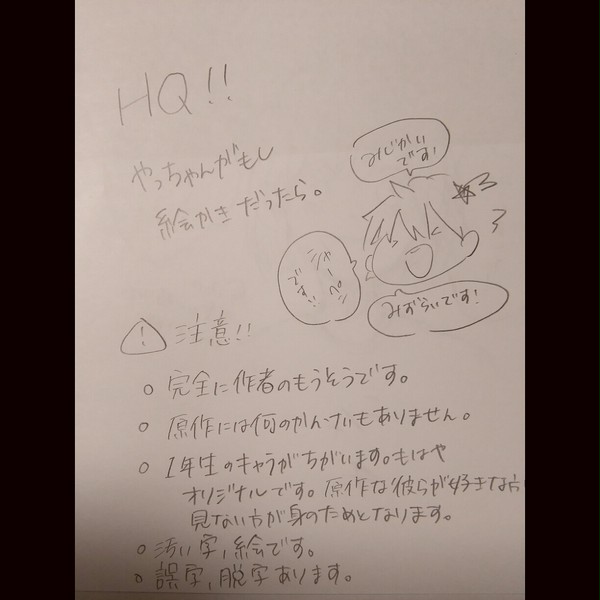 HQ!!
やっちゃんがもし
絵かきだったら。
みじかい
です!
シャーペン
です!!
みずらいです!
! 注意!!
○ 完全に作者のもうそうです。
○ 原作には何のかんけいもありません。
○ 1年生のキャラがちがいます。もはや
オリジナルです。原作な彼らが好きな方
見ない方が身のためとなります。
○ 汚い字,絵です。
○ 誤字,脱字あります。